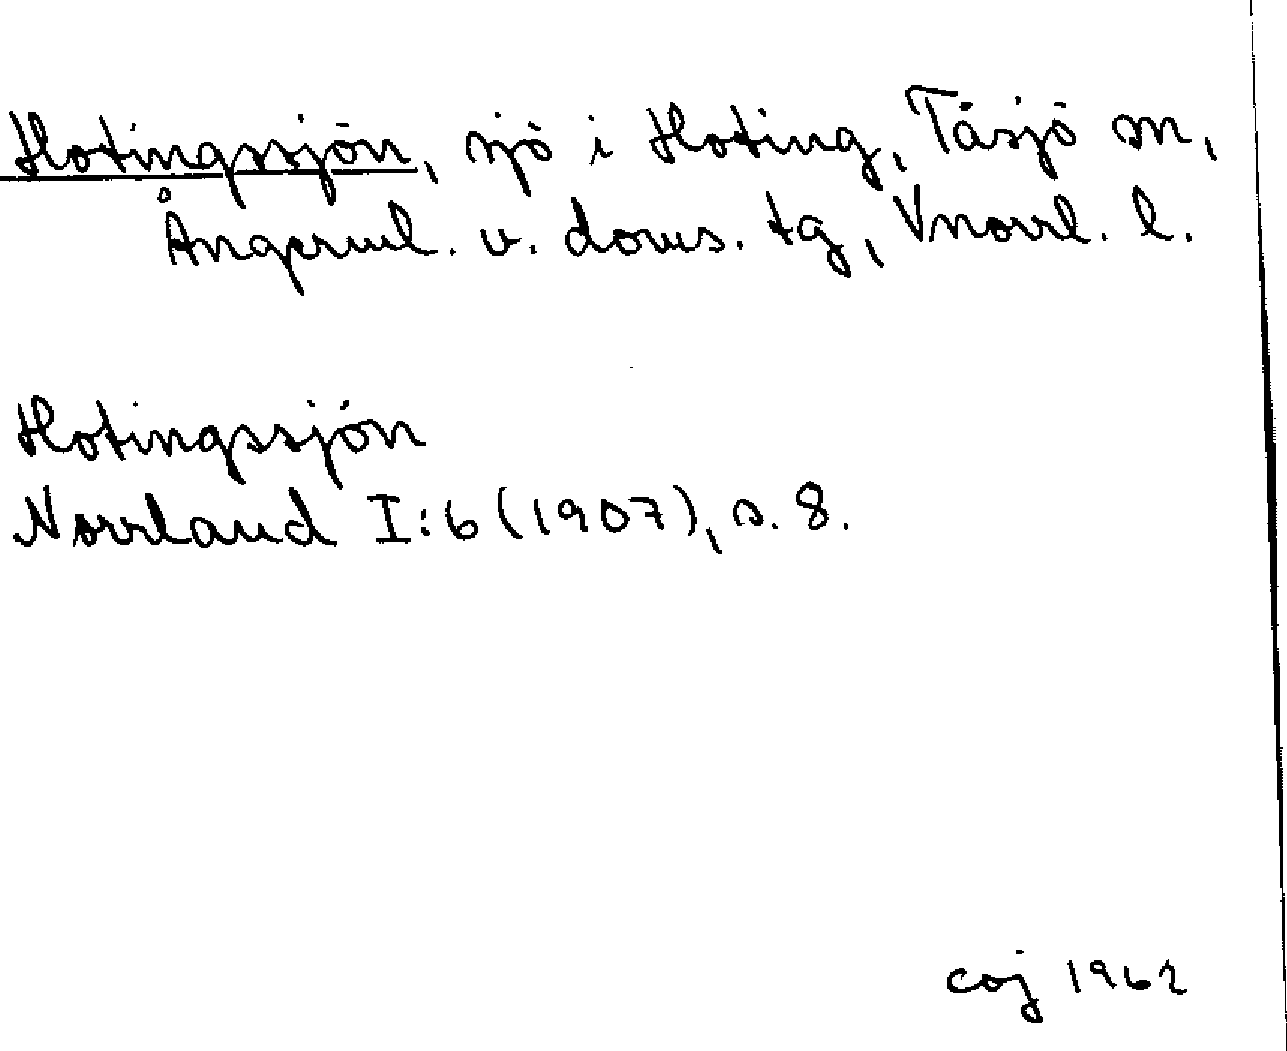 Hotingssjön, sjö i Hoting, Tåsjö sn,
Ångerml. v. doms. tg, Vnorrl. l.
Hotingssjön
Norrland I:6 (1907), s. 8.
coj 1962